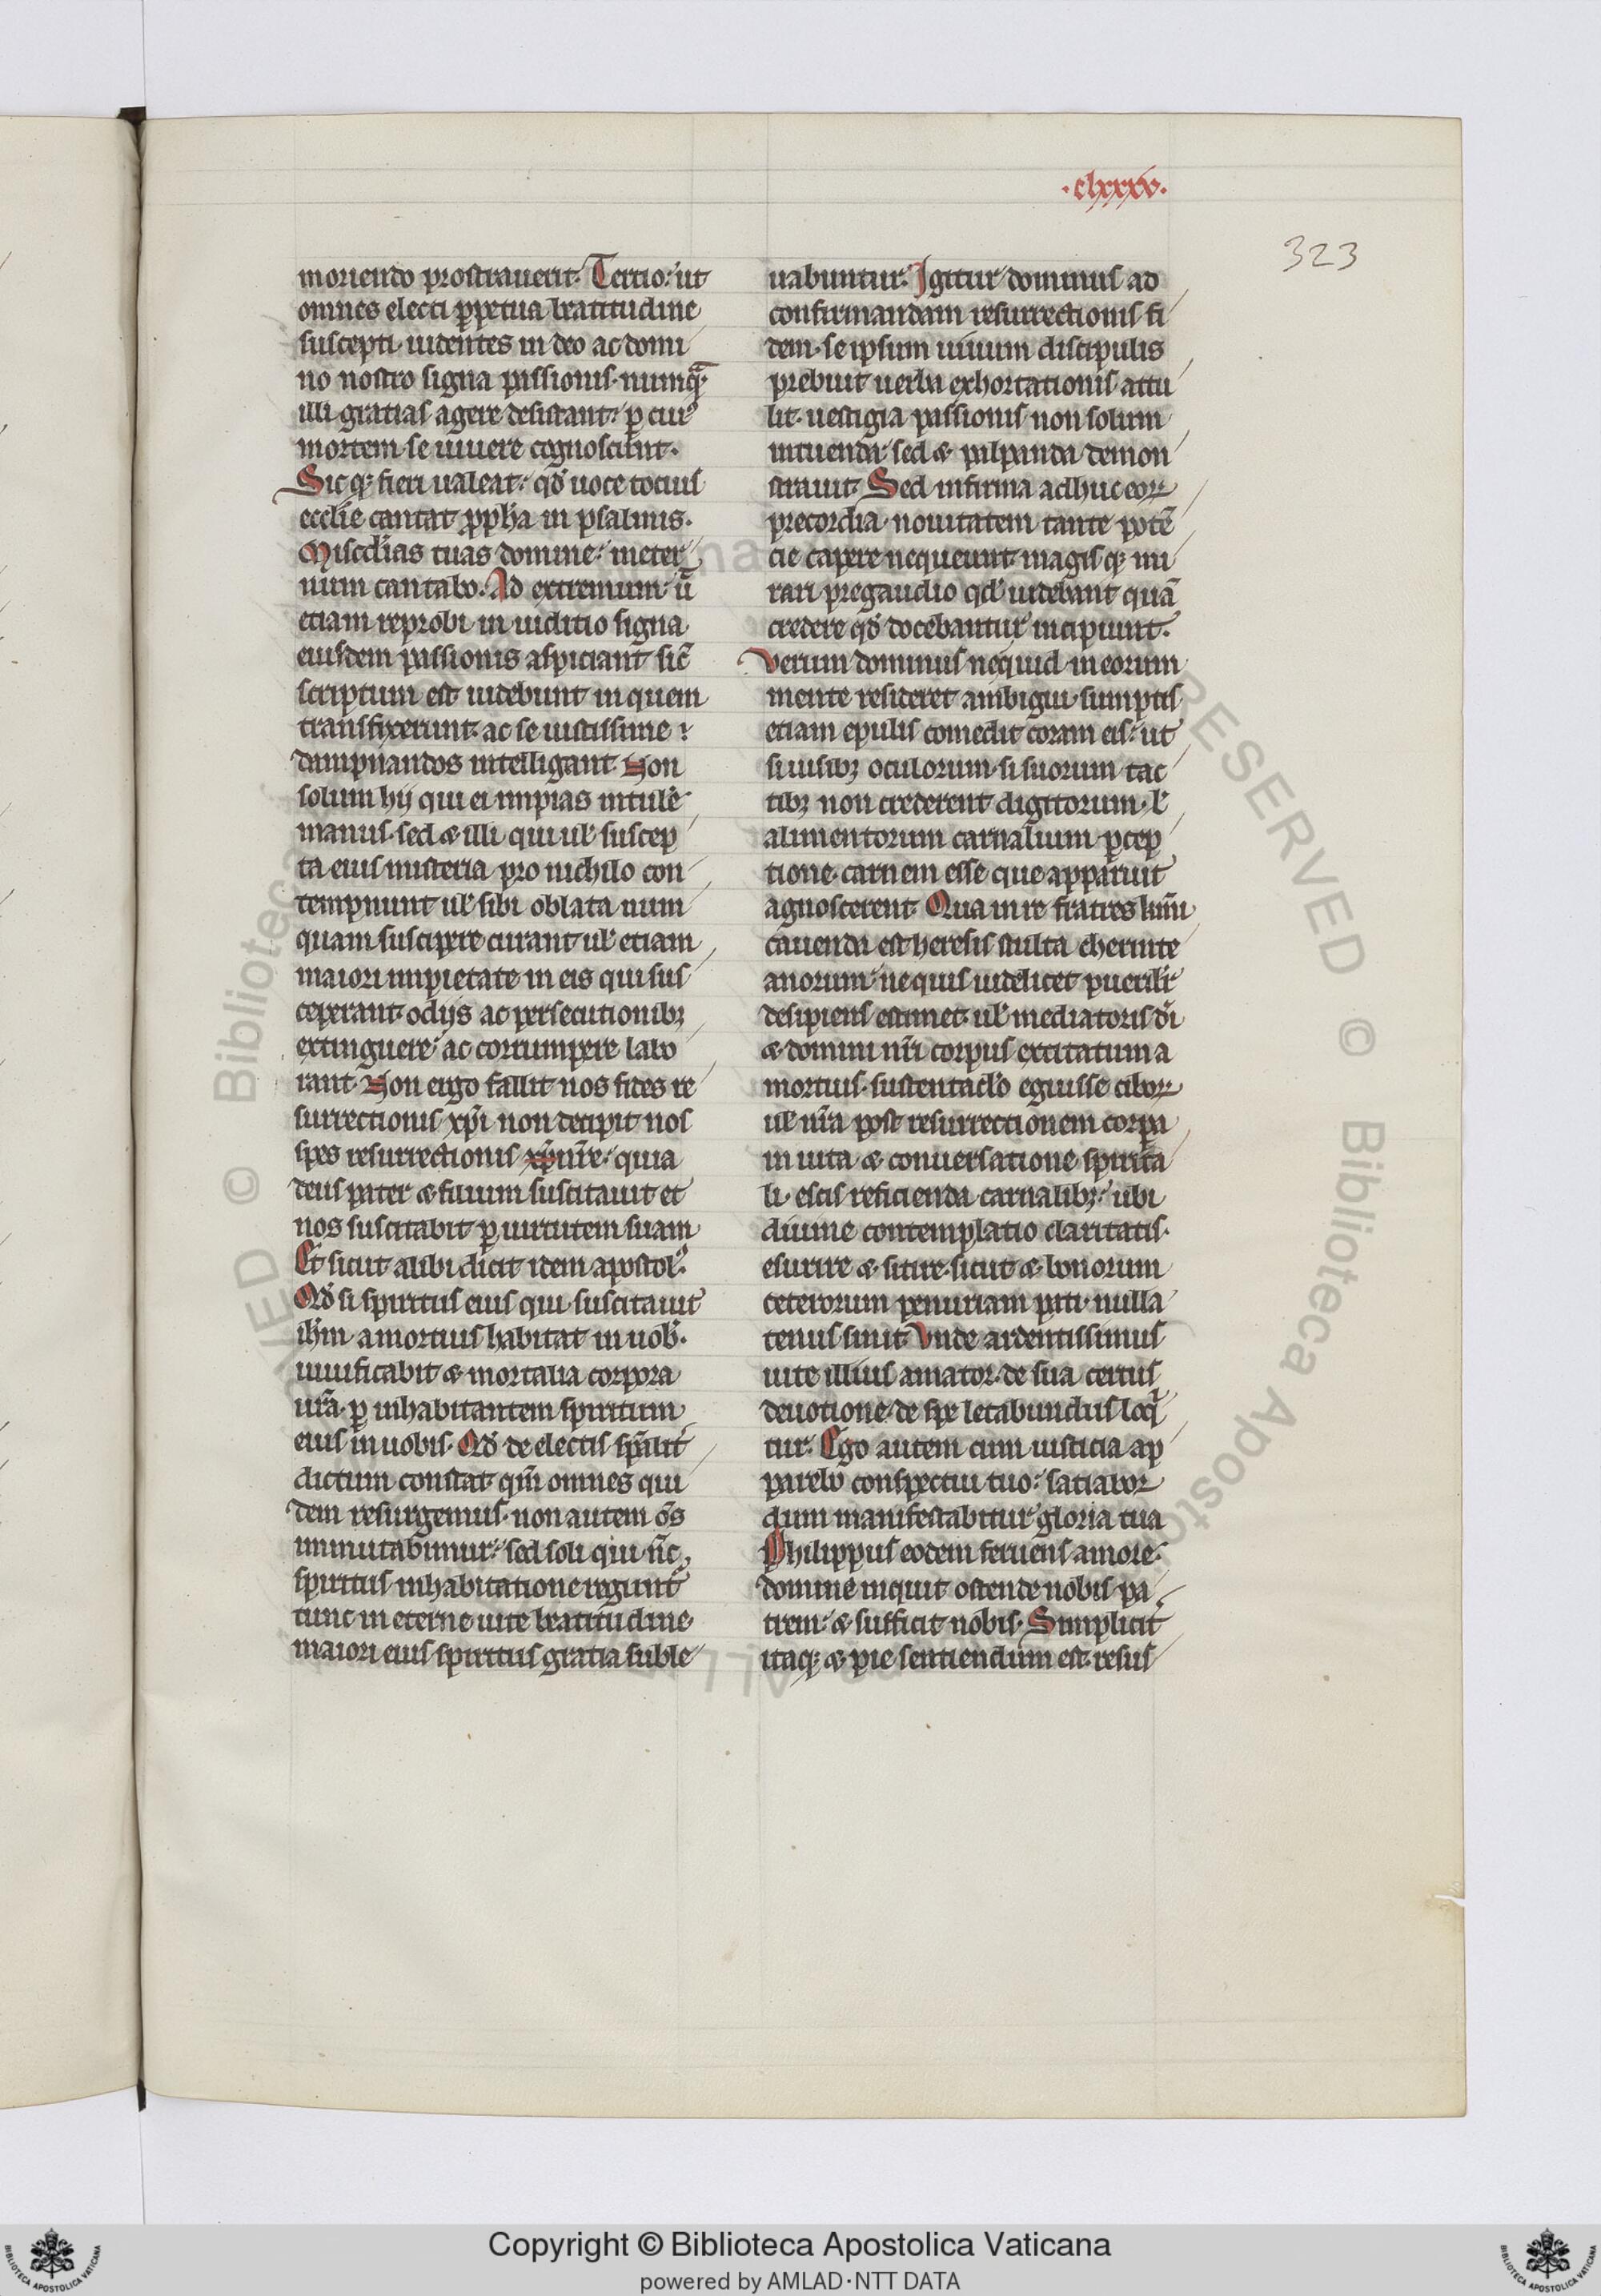 .clxxxv.
323
moriendo prostrauerit. Tertio: ut
omnes electi ꝑpetua beatitudine
suscepti. uidentes in deo ac domi
no nostro signa passionis. numqͣ̄
illi gratias agere desistant: ꝑ cuiꝰ
mortem se uiuere cognoscunt.
Sicqꝫ fieri ualeat: qd̓ uoce tocius
eccl̓ie cantat ꝓph̓a in psalmis.
Misc̓dias tuas domine: in eter
num cantabo. Ad extremum: ū̓
etiam reprobi in iuditio signa
eiusdem passionis aspiciant sic̄
scriptum est uidebunt in quem
transfixerunt. ac se iustissime
dampnandos intelligant. Non
solum hij qui ei impias intulē
manus. sed & illi qui ul̓ suscep
ta eius misteria pro nichilo con
tempnunt ul̓ sibi oblata num
quam suscipere curant ul̓ etiam
maiori impietate in eis qui sus
ceperant odijs ac persecutionibꝫ
extinguere: ac corrumpere labo
rant. Non ergo fallit nos fides re
surrectionis xp̄i non decipit nos
spes resurrectionis xp̄ nr̄e: quia
deus pater & filium suscitauit et
nos suscitabit ꝑ uirtutem suam
Et sicut alibi dicit idem apostolꝰ.
Qd̓ si spiritus eius qui suscitauit
ih̄m a mortuis habitat in uob̓.
uiuificabit & mortalia corpora
ur̄a. ꝑ inhabitantem spiritum
eius in uobis. Qd̓ de electis sp̄alit̓
dictum constat. qm̄ omnes qui
dem resurgemus. non autem om̄s
inmutabimur: sed soli qui nc̄
spiritus inhabitatione regunt̓
tunc in eterne uite beatitudine
maiori eius spiritus gratia suble
uabuntur. Igitur dominus ad
confirmandam resurrectionis fi
dem. se ipsum uiuum discipulis
prebuit uerba exhortationis attu
lit. uestigia passionis non solum
intuenda: sed & palpanda demon
strauit. Sed infirma adhuc eoꝝ
precordia. nouitatem tante potē
cie capere nequeunt. magisqꝫ mi
rari pregaudio qd̓ uidebant quā
credere qd̓ docebantur incipiunt.
Verum dominus nequid in eorum
mente resideret ambigui. sumptis
etiam epulis comedit coram eis: ut
si uisibꝫ oculorum. si suorum tac
tibꝫ non crederent digitorum. l̓
alimentorum carnalium ꝑcep
tione. carnem esse que apparuit
agnoscerent. Qua in re fratres kmī
cauenda est heresis stulta cherinte
anorum: ne quis uidelicet pueril̓r
desipiens estimet. ul̓ mediatoris di̓
& domini nr̄i corpus excitatum a
mortuis. sustentacl̓o eguisse ciboꝝ
ul̓ nr̄a post resurrectionem corpa
in uita & conuersatione spirita
li. escis reficienda carnalibꝫ: ubi
diuine contemplatio claritatis.
esurire & sitire. sicut & bonorum
ceterorum penuriam pati. nulla
tenus sinit. Vnde ardentissimus
uite illius amator. de sua certus
deuotione. de spe letabundus loqͥ
tur. Ego autem cum iusticia ap
parebo conspectui tuo: satiabor
dum manifestabitur gloria tua
Philippus eodem feruens amore:
domine inquit ostende nobis pa
trem: & sufficit nobis. Simplicit̓
itaqꝫ & pie sentiendum est. resus
Copyright © Biblioteca Apostolica Vaticana
powered by AMLAD·NTT DATA